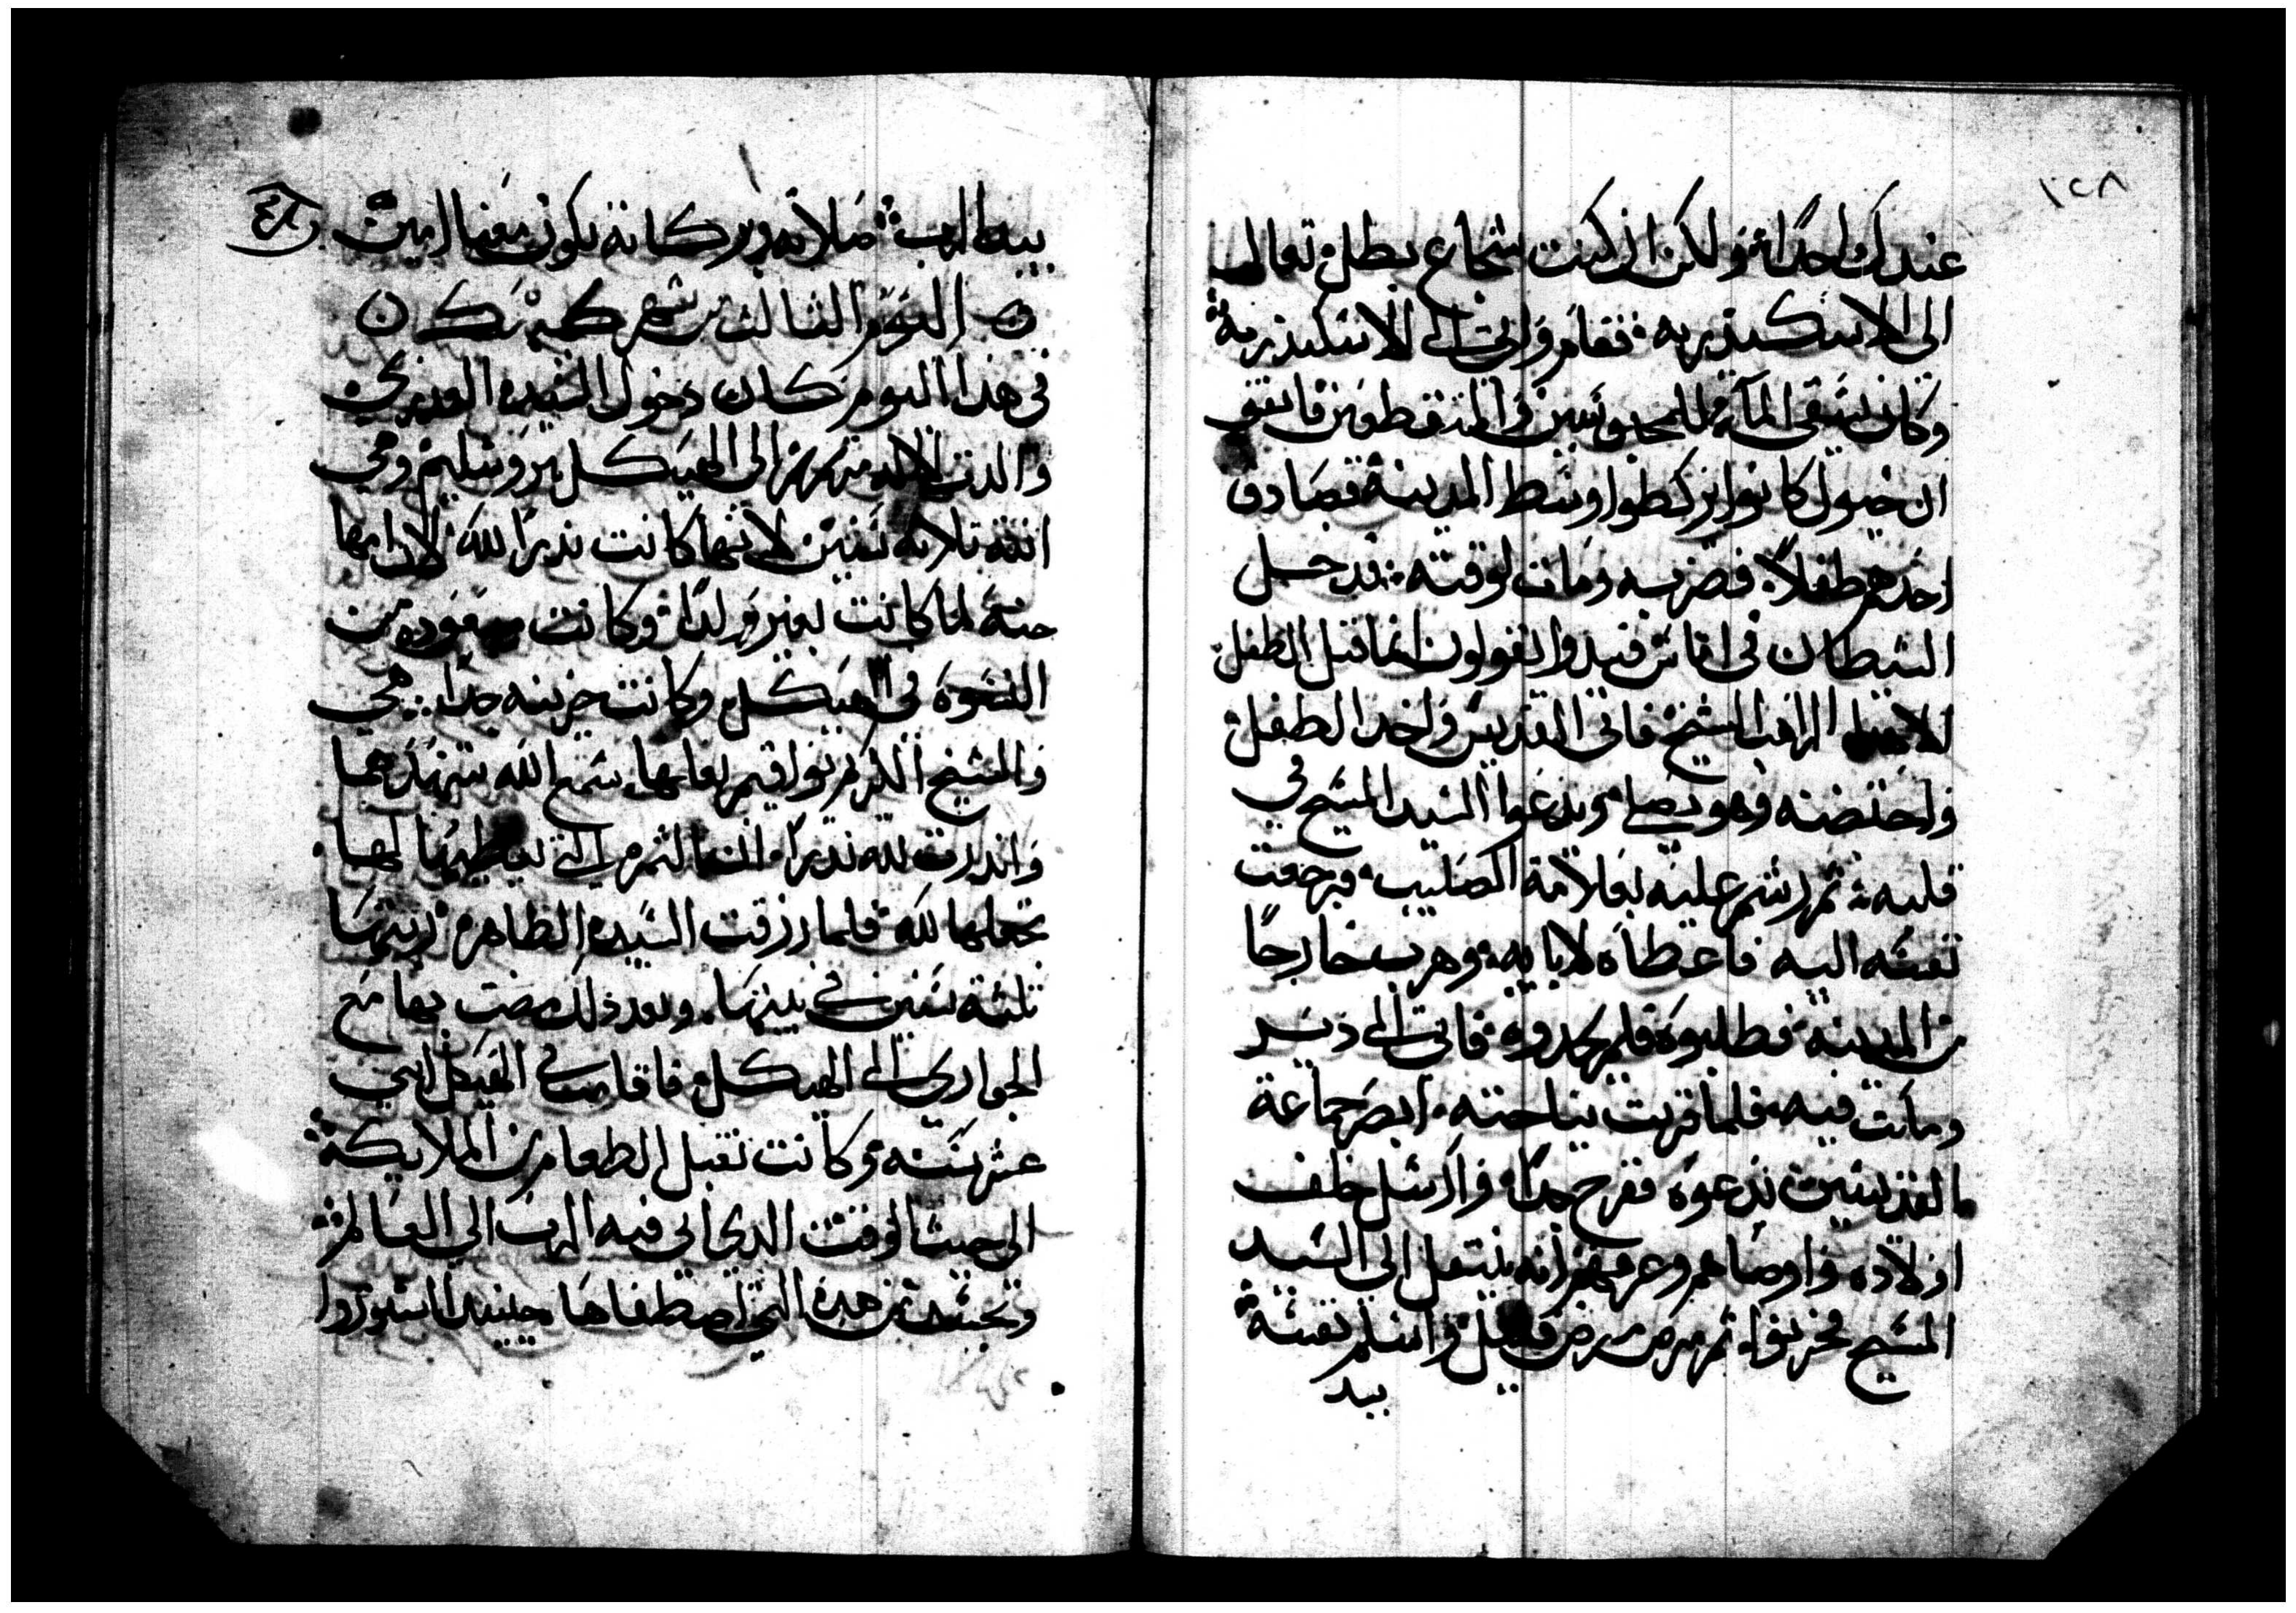 ١٢٨
عندك واحداة ولكن ان كنت شجاع بطل تعالى
الى الاسكندريه فقام واتى الى الاسكندرية
وكان يسقى المآء للمحبوسين فى
ان خيول كانوا يركظوا وسط المدينة فصادف
احدهم طفلاً فضربه ومات لوقته فدخل
الشيطان فى اناس قيدوا يقولون انما قتل الطفل
الا هدا الراهب الشيخ فاتى القديس واخد الطفل
واحتضنه وهو يصلى ويدعوا السيد المسيح في
قلبه ثم رشم عليه بعلامة الصليب فرجعت
نفسه اليه فاعطاه لابايه وهرب خارجاً
من المدينه فطلبوه فلم يجدوه فاتى الى دير
ومات فيه فلما قربت نياحته ابصر جماعة
القديسين تدعوه ففرح جداً وارسل خلف
اولاده واوصاهم وعرفهم انه ينتقل الى السيد
المسيح فحزنوا ثم مرض مرض قليل واسلم نفسه
بيد
بيد الرب صلاته وبركاته تكون معنا امين
اليوم الثالث من شهر كيهك
فى هذا اليوم كان دخول السيده العدرى
والدت الاله مرتمريم الى الهيكل بيروشليم وهي
ابنة تلاتة سنين لانها كانت نذراً لله لان امها
حنة لما كانت بغير ولداً وكانت مبعوده من
النسوة في الهيكل وكانت حزينه جداً هي
والشيخ المكرم يواقيم بعلها سمع الله تنهدهما
واندرت لله ندراً ان الثمره التي يعطيها لها
تجعلها لله فلما رزقت السيده الطاهره ربتها
ثلثة سنين في بيتها وبعد ذلك مضت بها مع
الجواري الى الهيكل فاقامت في الهيكل اثني
عشر سنه وكانت تقبل الطعام من الملايكة
الى حيث الوقت الدي اتي فيه الرب الى العالم
وتجسد من هده التي اصطفاها حينيد اتشوروا